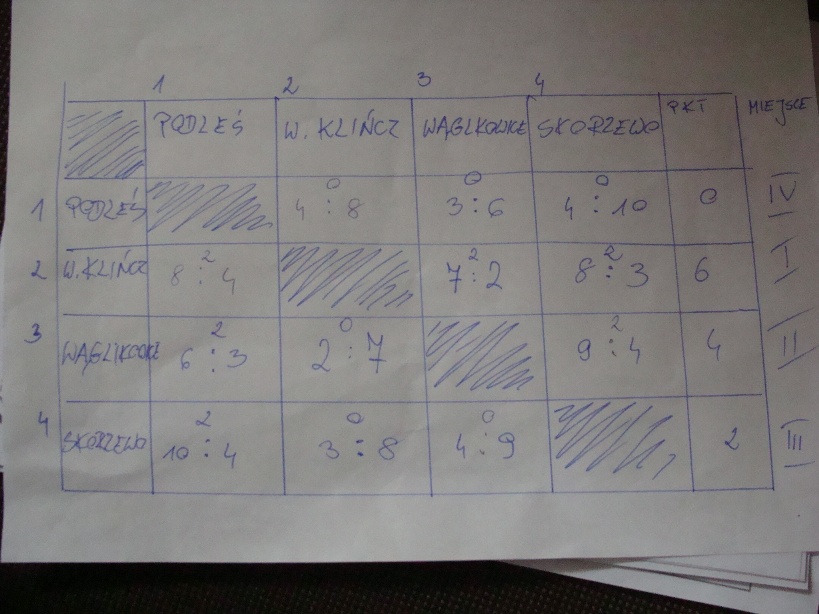 1 2 3 4
PODLEŚ W. KLIŃCZ WĄGLIKOWICE SKORZEWO PKT MIEJSCE
0 0 0
1 PODLEŚ 4 : 8 3 : 6 4 : 10 0 IV
2 2 2
2 W. KLIŃCZ 8 : 4 7 : 2 8 : 3 6 I
2 0 2
3 WĄGLIKOWICE 6 : 3 2 : 7 9 : 4 4 II
2 0 0
4 SKORZEWO 10 : 4 3 : 8 4 : 9 2 III